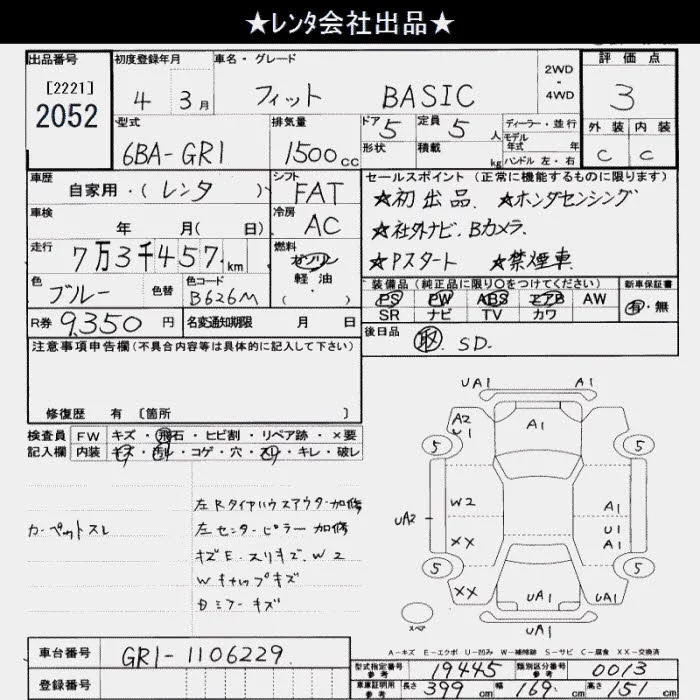 ★レンタ会社出品★
出品番号 初度登録年月 車名・グレード 2WD・4WD 評価点
[2221]
2052
4年3月 フィット BASIC 3
型式 排気量 ドア 定員 ディーラー・並行 外装 内装
6BA-GR1 1500cc 5 5人 モデル年式 年 C C
形状 積載 kg ハンドル 左・右
車歴 シフト セールスポイント(正常に機能するものに限ります)
自家用・(レンタ) FAT ★初出品 ★ホンダセンシング
車検 冷房 ★社外ナビ.Bカメラ.
年 月(日) AC ★Pスタート ★禁煙車
走行 燃料
7万3千457km ガソリン
軽油
( )
色 色替 色コード 装備品(純正品に限り○をつけてください) 新車保証書
ブルー B626M PS PW ABS エアB AW 有・無
SR ナビ TV カワ
R券 9,350円 名変通知期限 月 日 後日品
取. SD.
注意事項申告欄(不具合内容等は具体的に記入して下さい)
修復歴 有 [箇所 ]
検査員記入欄 FW キズ・飛石・ヒビ割・リペア跡・×要
内装 キズ・汚レ・コゲ・穴・スレ・キレ・破レ
カーペットスレ
左Rタイヤハウスアウター加修
左センターピラー加修
キズE.スリキズ.W2
Wキャップキズ
UA1 A1
A2 U1 A1
5 5
W2 A1
UA2 U1
XX A1
5 5
XX UA1 UA1
UA1
スペア
A-キズ E-エクボ U-凹み W-補修跡 S-サビ C-腐食 XX-交換済
車台番号 GR1-1106229
登録番号
型式指定番号 参考 19445 類別区分番号 参考 0013
車庫証明用 参考 長さ 399cm 幅 169cm 高さ 151cm